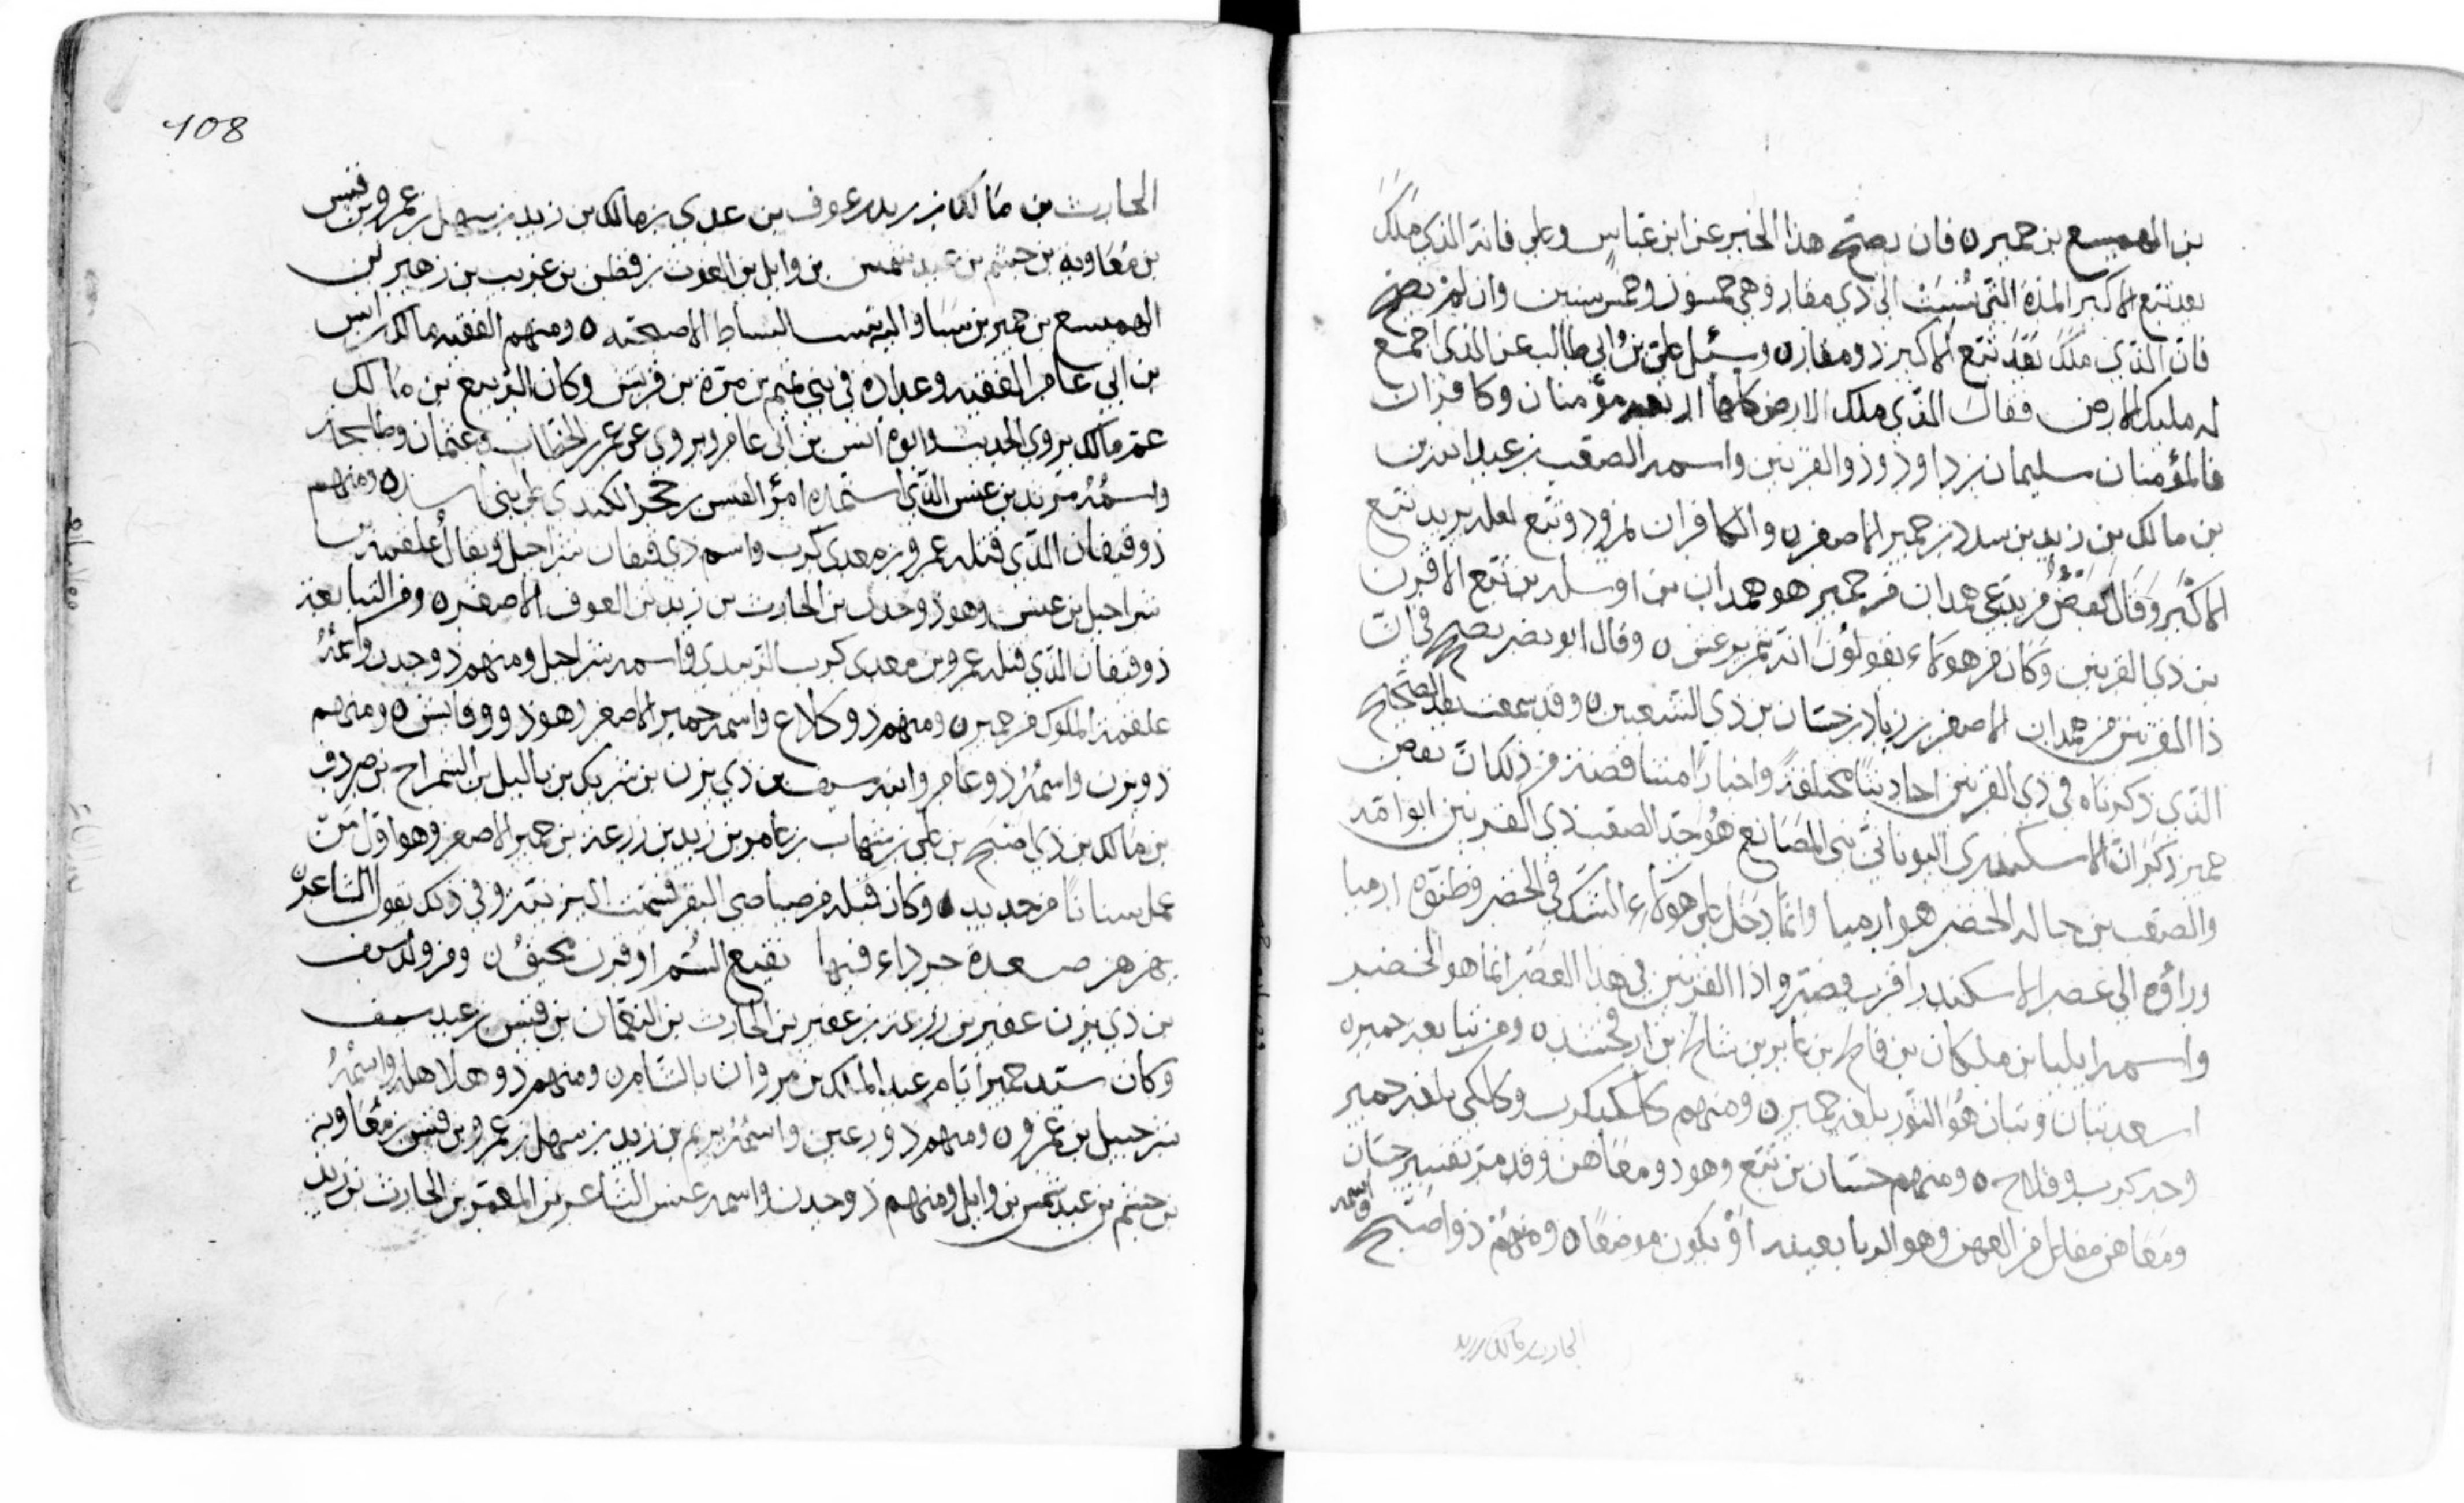 بن الهميسع بن حمير ه فان يصحّ هذا الخبر عن ابن عبّاس وعلي فانه الذي مَلَكَ
بعد تبّع الاكبر المدّة التي نُسِبَتْ الى ذي مقار وهي خمسون وخمس سنين وان لم يصحّ
فان الذي مَلَكَ بَعْدَ تبّع الاكبر ذو مقار ه وسئل علي بنُ ابي طالب عن الذي اجمع
له مليك الارض فقال الذي ملك الارض كلها اربعه مؤمنان وكافران
فالمؤمنان سليمان بن داود وذو القرنين واسمه الصعب بن عبد الله بن
بن مالك بن زيد بن سدد بن حمير الاصغر ه والكافران نمرود وتبع لعله يريد تبع
الاكْبَر وَقَالَ بَعْضُ من يدعي همدان من حمير هو همدان بن اوسله بن تبّع الاقرن
بن ذي القرنين وكان من هؤلاء يقولون انه شمر يرعش ه وقال ابو نصر يصح فان
ذا القرنين من همدان الاصغر بن زياد بن حسّان بن ذي الشعبين ه وقد سمعت بعد الصحّ
الذي ذكرناه في ذي القرنين احاديثًا مختلفةً واخبارًا متناقضة من ذلك انّ بعض
حمير ذكر انّ الاسكندري اليوناني بني المصَانِع هُوَ جد الصعب ذي القرنين ابو امّه
والصعب بن خاله الخضر هو ارميا وانّما دَخَلَ على هؤلاءِ الشك في الخضر فظنّوه ارميا
وراؤه الى عصر الاسكندر اقرب فصيّروا ذا القرنين في هذا العصر انما هو الخضر
واسمه ايليا بن ملكان بن فالخ بن عابر بن شالخ بن ارفخشد ه ومن تبابعه حمير ه
اسعد تبان وتبان هُوَ النور بلغه حمير ه ومنهم كالكيكرب وكالكي بلغه حمير
وجد كرب وفلاح ه ومنهم حسّان بن تبّع وهو ذو معَاهن وقد مرّ تفسير حسان
ومَعَاهن مفاعل من العهن وهو الربا بعينه اوْ يكون موضعًا ه ومِنْهُمْ ذو اصبح واسمه
الحارث بن مالك بن زيد
108
الحارث بن مَالك بن زيد بن عوف بن عدي بن مالك بن زيد بن سهل بن عمرو بن قيس
بن مُعَاويه بن جشم بن عبد شمس بن وايل بن الغوث بن قطن بن عريب بن زهير بن
الهميسع بن حمير بن سبا واليه تنسب السياط الاصبحيّه ه ومنهم الفقيه مالك بن انس
بن ابي عامر الفقيه وعداده في بني تيم بن مرّه بن قريش وكان الربيع بن مالك
عمّ مَالك يروي الحديث وابوه انس بن ابي عامر ويروي عن عمر بن الخطّاب وعثمان وطلحة
واسْمُهُ مرثد بن عنس الذي استمدّه امرُؤ القيس بن حجر الكندي على بني اسد ه ومنهم
ذو قيفان الذي قتله عمرو بن معدي كرب واسم ذي قيفان شراحيل ويقال عُلقمه بن
شراحيل بن عنس وهو ذو جدن بن الحارث بن زيد بن الغوث الاصغر ه ومن التبابعة
ذو قيفان الذي قتله عمرو بن معدي كرب الزبيدي واسمه شراحيل ومنهم ذو جدن وابنُهُ
علقمة الملوك من حمير ه ومنهم ذو كلاع واسمه حمير الاصغر وهو ذو فايش ه ومنهم
ذو يزن واسْمُهُ ذو عامر وابنه سيف بن ذي يزن بن شريك بن ياليل بن الشراح بن صردف
بن مَالك بن ذي اصبح بن علي بن شهاب بن عامر بن زيد بن زرعة بن حمير الاصغر وهو اوّل من
عمل سنانًا من حديد ه وكان قبله من صياصي البقر فسمّت اليزنيّة وفي ذلك يقول الشاعر
يهزهز صعدة جرداء فيها نقيع السُّم او قرن محيقُ ه ومن ولد سيف
بن ذي يزن عفير بن زرعة بن عفير بن الحارث بن النعْمَان بن قيس بن عبد سيف
وكان سيّد حمير ايّام عبد الملك بن مروان بالشام ه ومنهم ذو هلاهله واسْمُهُ
شرحبيل بن عَمرو ه ومنهم ذو رعين واسْمُهُ يريم بن زيد بن سهل بن عمرو بن قيس بن مُعَاوية
بن جشم بن عبد شمس بن وايل ومنهم ذو جدن واسمه عنس الشاعر بن المعمر بن الحارث بن زيد